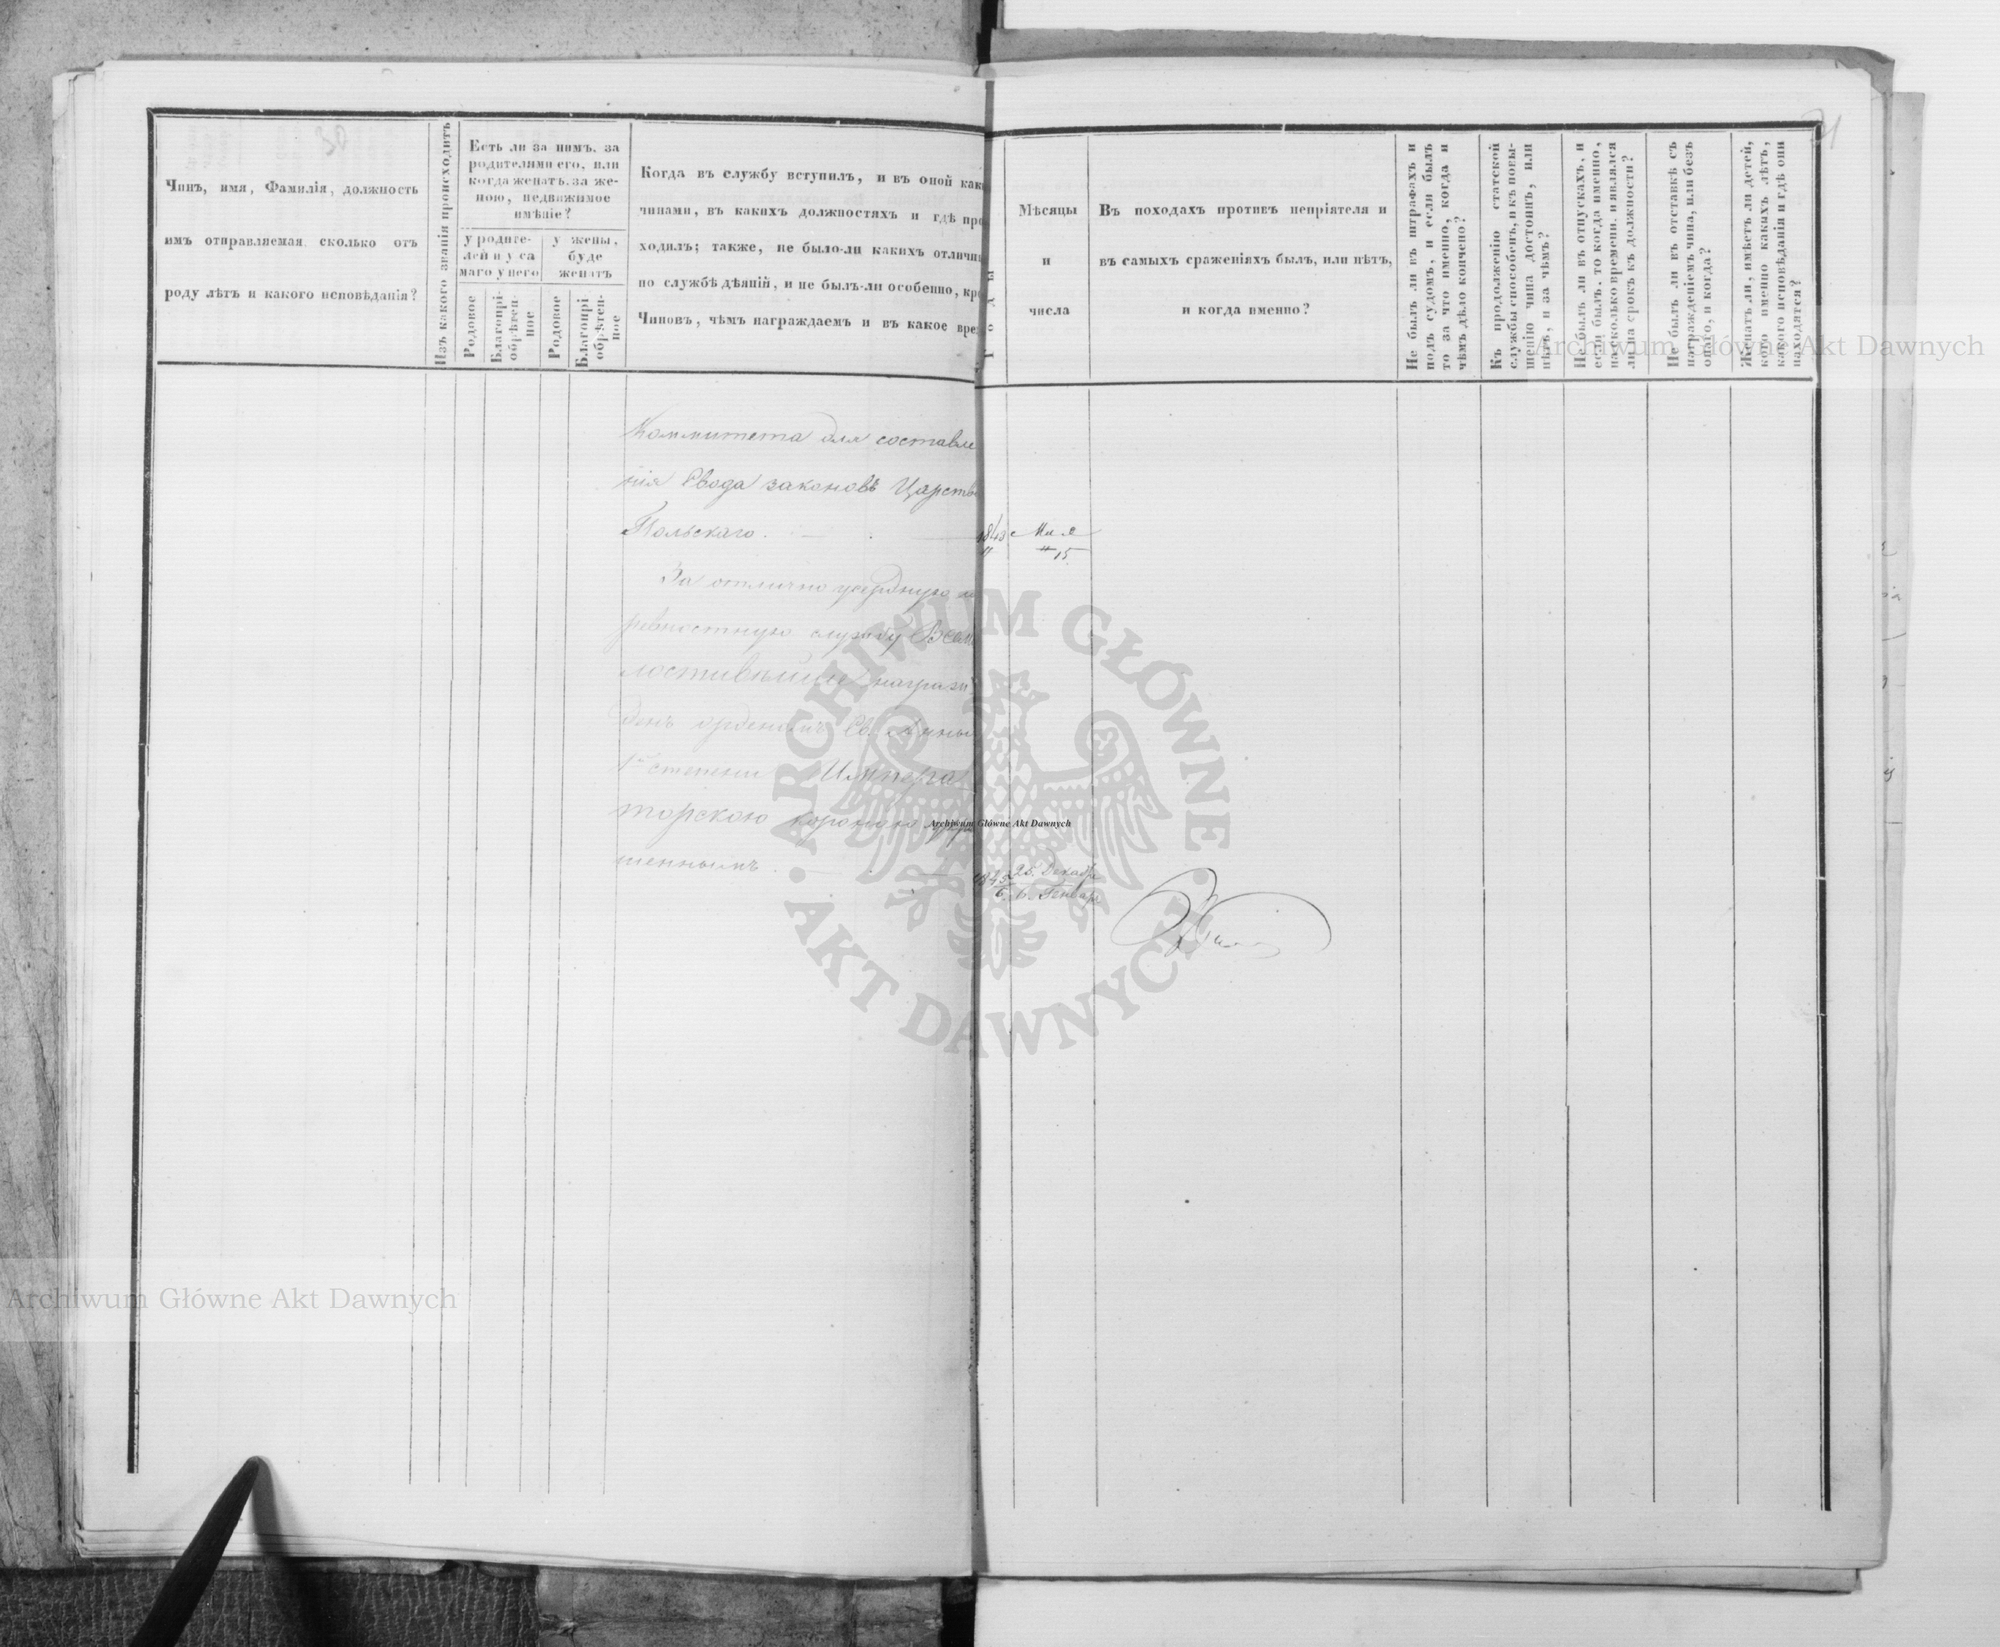 Чинъ, имя, Фамилія, должность
имъ отправляемая, сколько отъ
роду лѣтъ и какого исповѣданія?
Изъ какого званія происходитъ
Есть ли за нимъ, за
родителями его, или
когда женатъ, за же-
ною, недвижимое
имѣніе?
у родите-
лей и у са
маго у него
у жены,
буде
женатъ
Родовое
Благопрі-
обрѣтен-
ное
Родовое
Благопрі
обрѣтен-
ное
Когда въ службу вступилъ, и въ оной как
чинами, въ какихъ должностяхъ и гдѣ про
ходилъ; также, не было-ли какихъ отличн
по службѣ дѣяній, и не былъ-ли особенно, кро
Чиновъ, чѣмъ награждаемъ и въ какое вре
Годы
Мѣсяцы
и
числа
Въ походахъ противъ непріятеля и
въ самыхъ сраженіяхъ былъ, или нѣтъ,
и когда именно?
Не былъ ли въ штрафахъ и
подъ судомъ, и если былъ
то за что именно, когда и
чѣмъ дѣло кончено?
Къ продолженію статской
службы способенъ, и къ повы-
шенію чина достоинъ, или
нѣтъ, и за чѣмъ?
Не былъ ли въ отпускахъ, и
если былъ, то когда именно,
насколько времени, и явился
ли на срокъ къ должности?
Не былъ ли въ отставкѣ съ
награжденіемъ чина, или безъ
онаго, и когда?
Женатъ ли, имѣетъ ли детей,
кого именно какихъ лѣтъ,
какого исповѣданія и гдѣ они
находятся?
Коммитета для составле
нія Свода законовъ Царства
Польскаго. 1843 Мая
15
За отлично усердную и
ревностную службу Всеми
лостивѣйше награж
денъ орденомъ Св. Анны
1й степени Импера
торскою короною укра
шеннымъ. 1845 25 Декабр
6 6 Генвар
Archiwum Główne Akt Dawnych
Archiwum Główne Akt Dawnych
Archiwum Główne Akt Dawnych
ARCHIWUM GŁÓWNE · AKT DAWNYCH ·